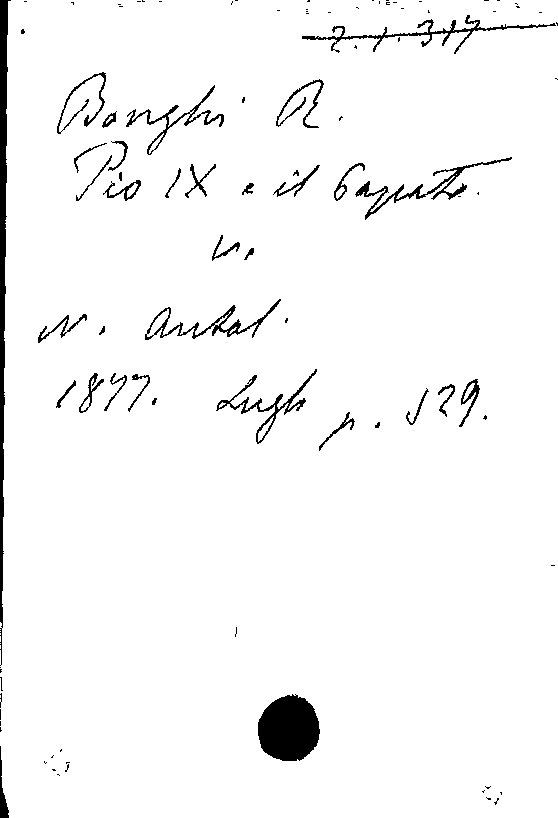 2.1.317
Bonghi R.
Pio IX e il Papato.
in
N. Antol.
1877. Luglio p. 529.